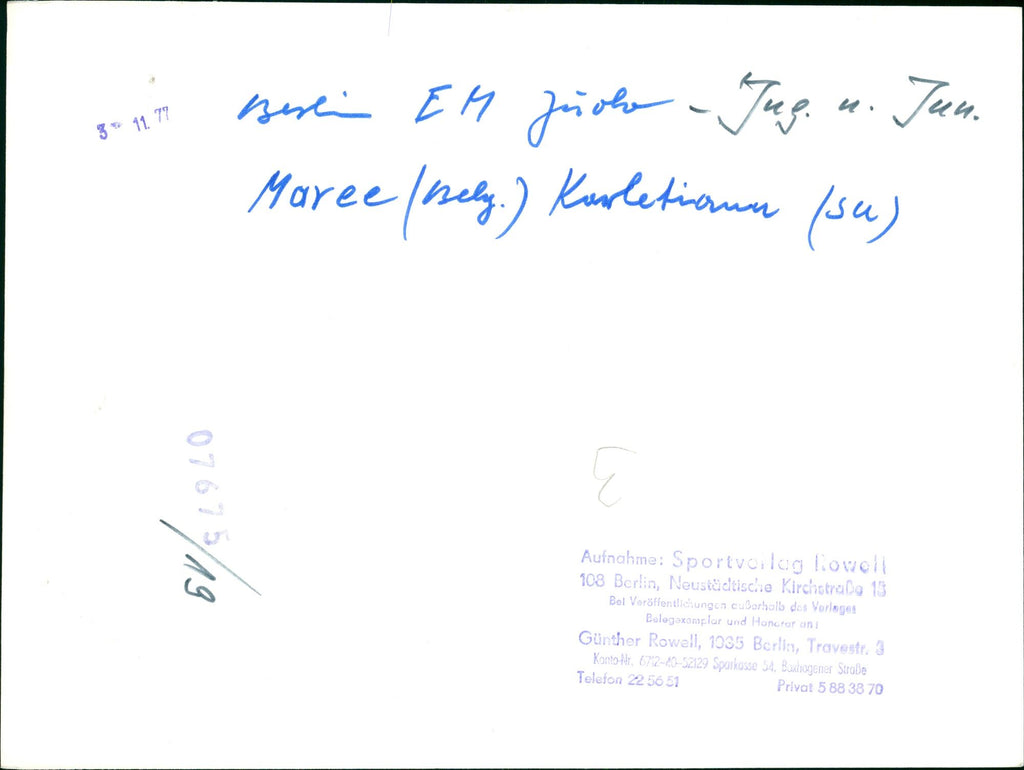 3 - 11. 77
Berlin EM Judo - Jug. u. Jun.
Maree (Belg.) (SU)
07675
/19
3
Aufnahme: Sportverlag Rowell
108 Berlin, Neustädtische Kirchstraße 15
Bei Veröffentlichungen außerhalb des Verlages
Belegexemplar und Honorar an:
Günther Rowell, 1035 Berlin, Travestr. 3
Konto-Nr. 6712-40-52129 Sparkasse 54, Boxhagener Straße
Telefon 22 56 51 Privat 5 88 38 70